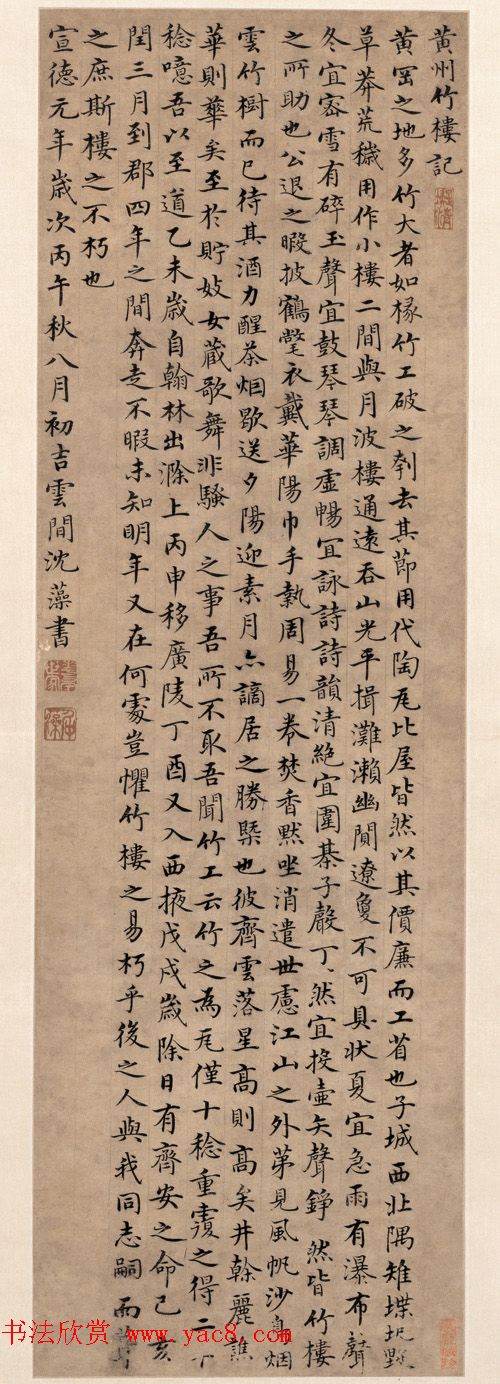 黃州竹樓記
黃岡之地多竹大者如椽竹工破之刳去其節用代陶瓦比屋皆然以其價廉而工省也子城西北隅雉堞圮毀
草莽荒穢用作小樓二間與月波樓通遠吞山光平揖灘瀨幽閴遼敻不可具狀夏宜急雨有瀑布聲
冬宜密雪有碎玉聲宜鼓琴琴調虛暢宜詠詩詩韻清絕宜圍棊子聲丁〻然宜投壺矢聲錚〻然皆竹樓
之所助也公退之暇披鶴氅衣戴華陽巾手執周易一卷焚香默坐消遣世慮江山之外第見風帆沙鳥烟
雲竹樹而已待其酒力醒茶烟歇送夕陽迎素月亦謫居之勝槩也彼齊雲落星高則高矣井榦麗譙
華則華矣至於貯妓女藏歌舞非騷人之事吾所不取吾聞竹工云竹之為瓦僅十稔重覆之得二十
稔噫吾以至道乙未歲自翰林出滁上丙申移廣陵丁酉又入西掖戊戌歲除日有齊安之命己亥
閏三月到郡四年之間奔走不暇未知明年又在何處豈懼竹樓之易朽乎後之人與我同志嗣而葺
之庶斯樓之不朽也
宣德元年歲次丙午秋八月初吉雲間沈藻書
书法欣赏 www.yac8.com